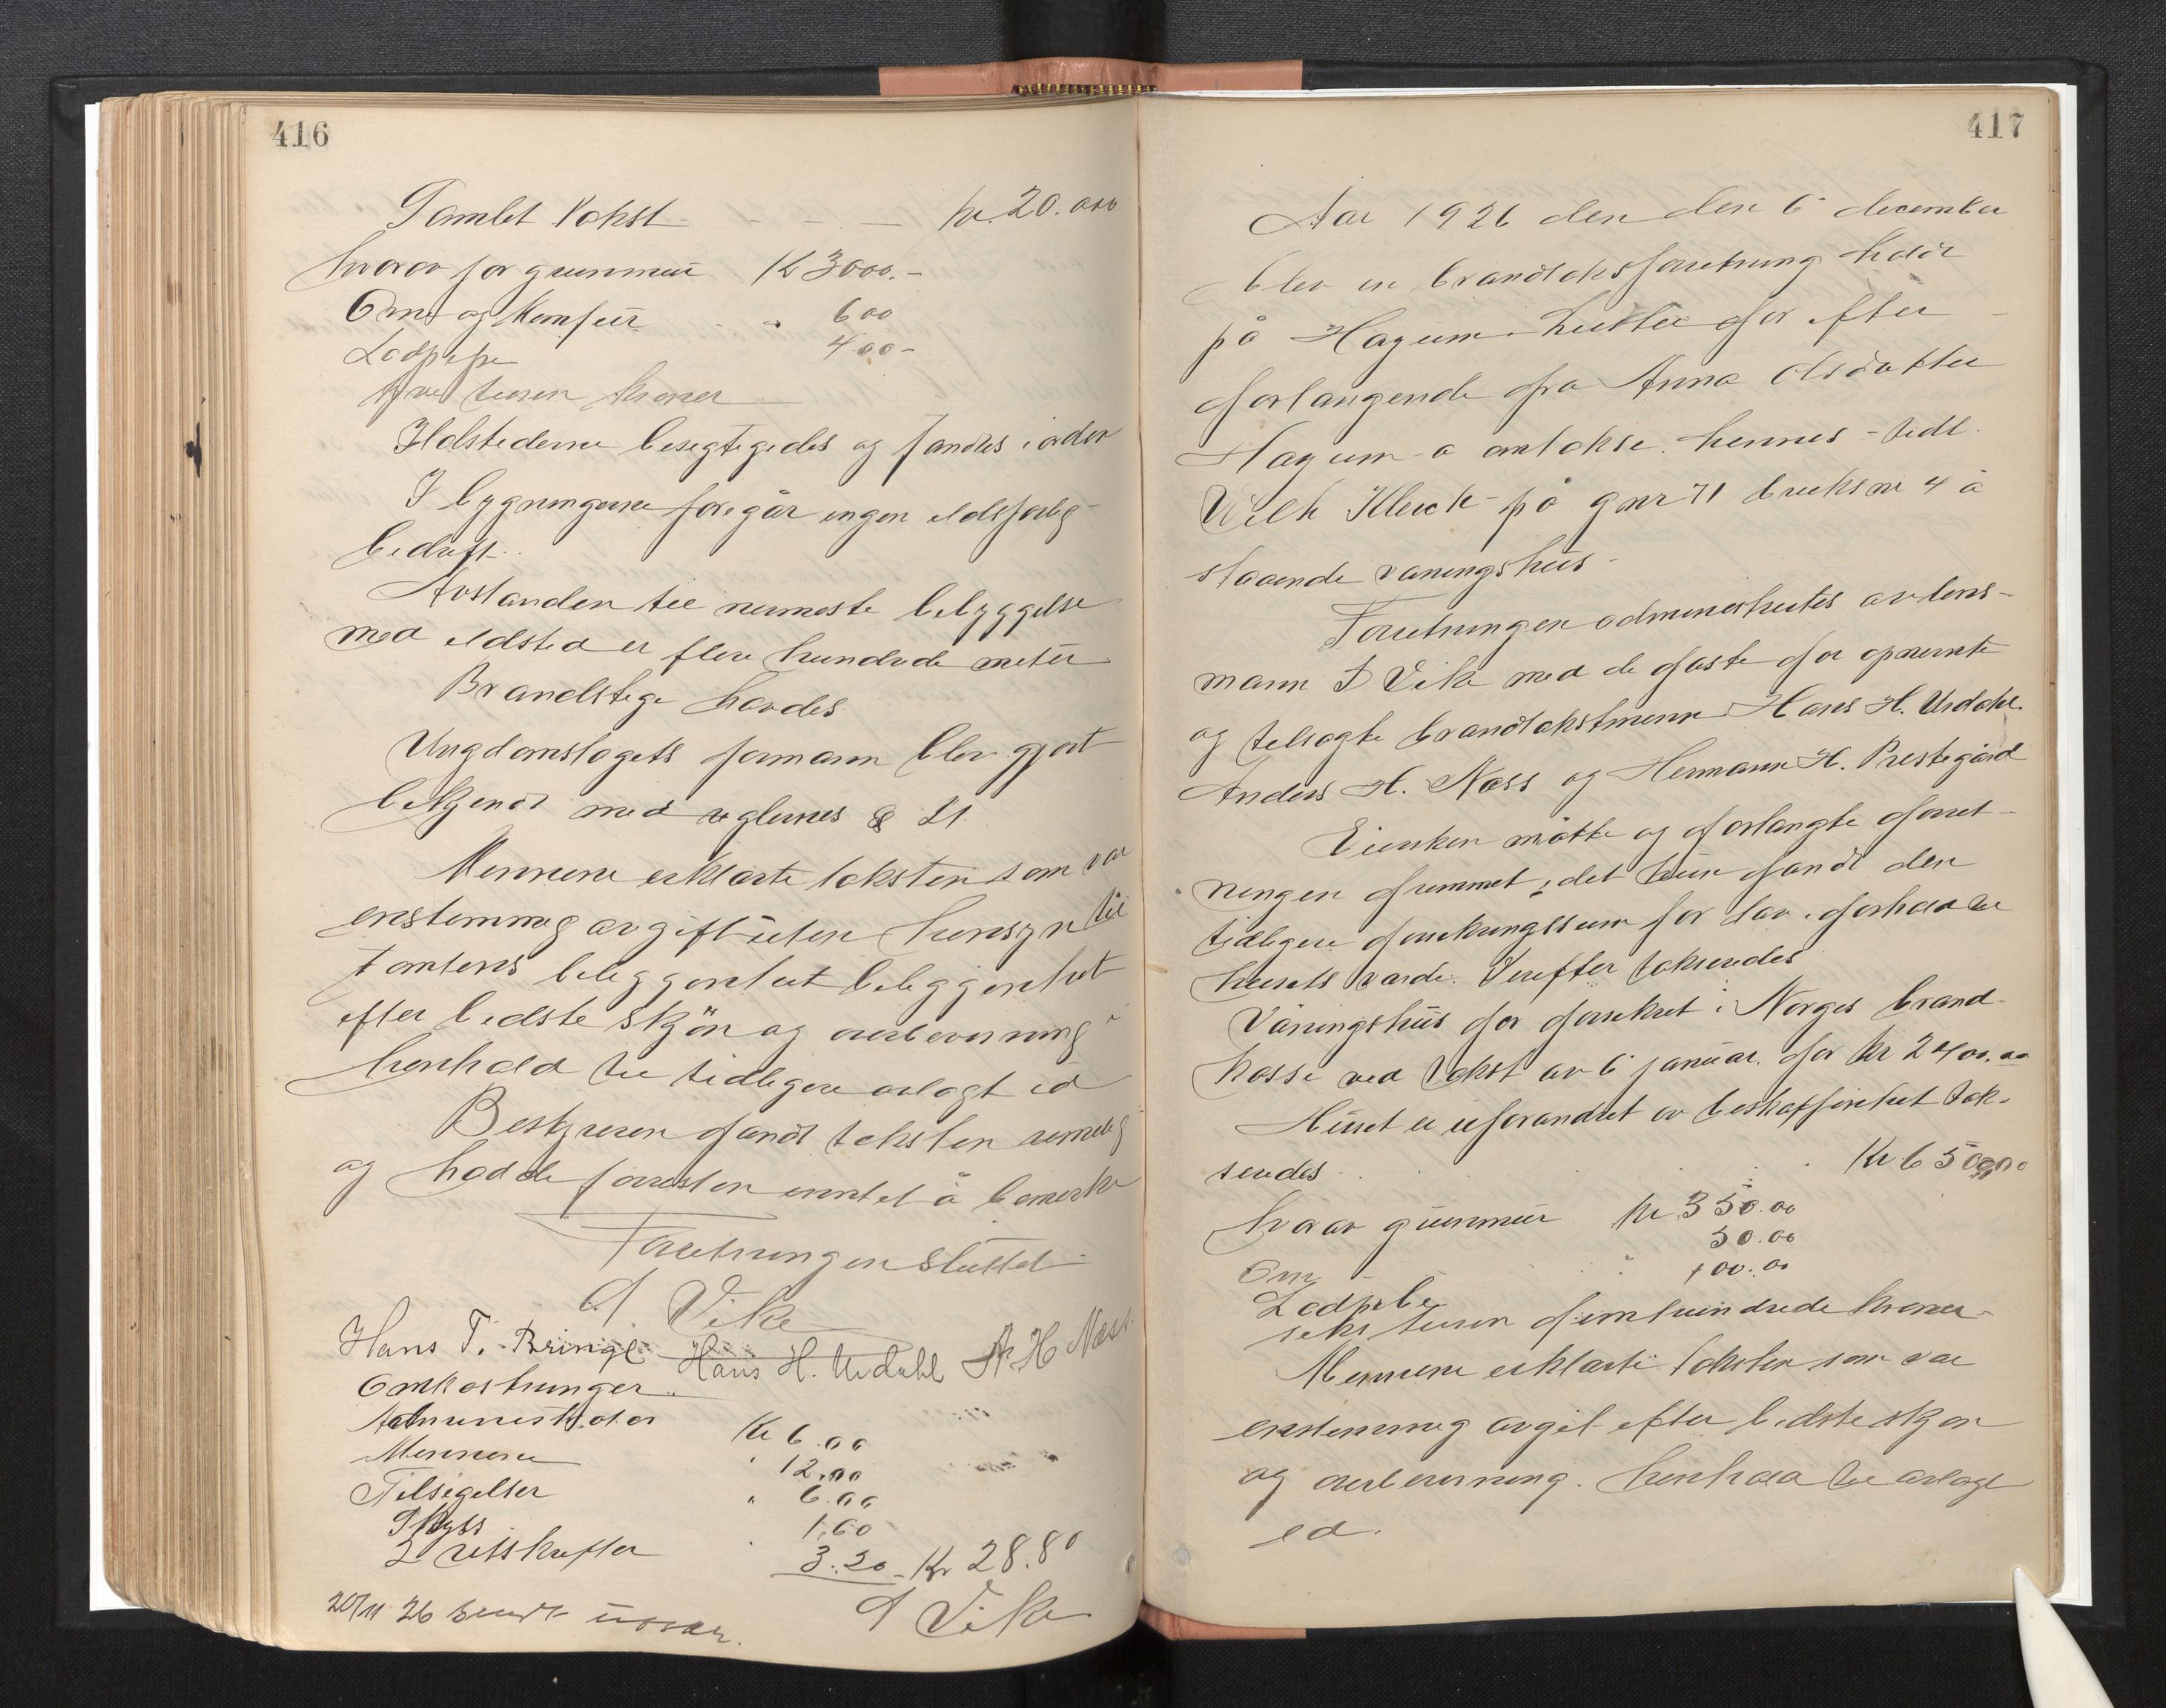 416
Samlet takst - - - kr. 20.000
hvorav for grunnmur kr 3000.-
Ovn og komfur " 600
Lodpipe 400-
tyve tusen kroner
Ildstederne besigtigedes og fandtes i orden
I bygningerne foregår ingen ildsfarlig
bedrift.
Avstanden til nærmeste bebyggelse
med ildsted er flere hundrede meter
Brandstige havdes
Ungdomslagets formann blev gjort
bekjendt med reglernes § 21
Mennene erklærte taksten som var
enstemmig avgift uten hensyn til
tomtens beliggenhet beliggenhet
efter bedste skjön og overbevisning i
henhold til tidligere avlagt ed
Bestyreren fandt taksten rimelig
og hadde forresten inntet å bemerke
Forretningen sluttet
J Vike
Hans T. Bringe Hans H. Urdahl A H Næss
Omkostninger
Administrator Kr 6.00
Mennene " 12.00
Tilsigelser " 6.00
Skyss 1.60
2 utskrifter 3.20 - Kr 28.80
20/11 26 sendt
J Vike
417
Aar 1926 den den 6 december
blev en brandtaksforretning holdt
på Hagum hustler for efter
forlangende fra Anna Olsdatter
Hagum a omtakse hennes - tidl.
Vilh Kleick - på gnr 71 bruksnr 4 å
staaende vaningshus -
Forretningen administrertes av lens-
mann J Vike med de faste for opnevnte
og tilsagte brandtakstmenn Hans H. Urdahl.
Anders H. Næss og Hermann H. Prestegård
Eierken mötte og forlangte forret-
ningen fremmet, idet hun fandt den
tidligere forsikringssum for lav i forhold til
husets værdi. Derefter takseredes
Våningshus for forsikret i Norges brand-
kasse ved takst av 6 januar for kr 2400.00
Huset er uforandret av beskaffenhet tak-
seredes Kr 6500.00
hvorav grunnmur kr 350.00
Ovn - " 50.00
Lodpibe 100.00
seks tusen femhundrede kroner -
Mennene erklærte taksten som var
enstemmig avgit efter bedste skjøn
og overbevisning i henhold til avlagt
ed.